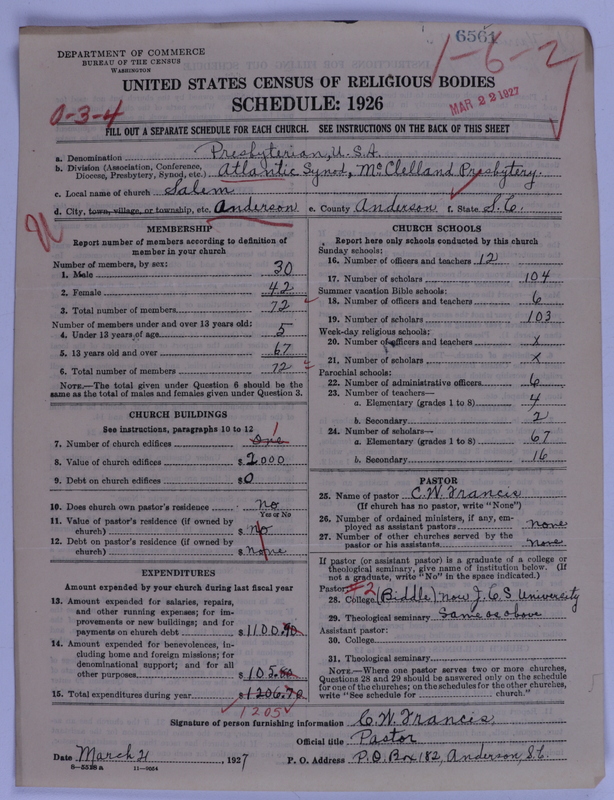 6561
1-6-2
DEPARTMENT OF COMMERCE
BUREAU OF THE CENSUS
WASHINGTON
UNITED STATES CENSUS OF RELIGIOUS BODIES
SCHEDULE: 1926
MAR 22 1927
0-3-4
FILL OUT A SEPARATE SCHEDULE FOR EACH CHURCH. SEE INSTRUCTIONS ON THE BACK OF THIS SHEET
a. Denomination Presbyterian, U.S.A.
b. Division (Association, Conference, Diocese, Presbytery, Synod, etc.) Atlantic Synod, McClelland Presbytery.
c. Local name of church Salem
d. City, town, village, or township, etc. Anderson e. County Anderson f. State S.C.
MEMBERSHIP
Report number of members according to definition of member in your church
Number of members, by sex:
1. Male 30
2. Female 42
3. Total number of members 72
Number of members under and over 13 years old:
4. Under 13 years of age 5
5. 13 years old and over 67
6. Total number of members 72
NOTE.—The total given under Question 6 should be the same as the total of males and females given under Question 3.
CHURCH BUILDINGS
See instructions, paragraphs 10 to 12
7. Number of church edifices One 1
8. Value of church edifices $2000
9. Debt on church edifices $0
10. Does church own pastor's residence No
Yes or No
11. Value of pastor's residence (if owned by church) $ no
12. Debt on pastor's residence (if owned by church) $ none
EXPENDITURES
Amount expended by church during last fiscal year
13. Amount expended for salaries, repairs, and other running expenses; for improvements or new buildings; and for payments on church debt $1100.
14. Amount expended for benevolences, including home and foreign missions; for denominational support; and for all other purposes $105.
15. Total expenditures during year $1206.70
1205
CHURCH SCHOOLS
Report here only schools conducted by this church
Sunday schools:
16. Number of officers and teachers 12
17. Number of scholars 104
Summer vacation Bible schools:
18. Number of officers and teachers 6
19. Number of scholars 103
Week-day religious schools:
20. Number of officers and teachers x
21. Number of scholars x
Parochial schools:
22. Number of administrative officers 6
23. Number of teachers—
a. Elementary (grades 1 to 8) 4
b. Secondary 2
24. Number of scholars—
a. Elementary (grades 1 to 8) 67
b. Secondary 16
PASTOR
25. Name of pastor C.W. Francis
(If church has no pastor, write "None")
26. Number of ordained ministers, if any, employed as assistant pastors none
27. Number of other churches served by the pastor or his assistants none
If pastor (or assistant pastor) is a graduate of a college or theological seminary, give name of institution below. (If not a graduate, write "No" in the space indicated.)
Pastor: #2
28. College (Biddle) now J.C.S University
29. Theological seminary Same as above
Assistant pastor:
30. College
31. Theological seminary
NOTE.—Where one pastor serves two or more churches, Questions 28 and 29 should be answered only on the schedule for one of the churches; on the schedules for the other churches, write "See schedule for church."
Signature of person furnishing information C.W. Francis
Official title Pastor
Date March 21, 1927 P. O. Address P.O. Box 182, Anderson, S.C.
8-5518 a 11-9024